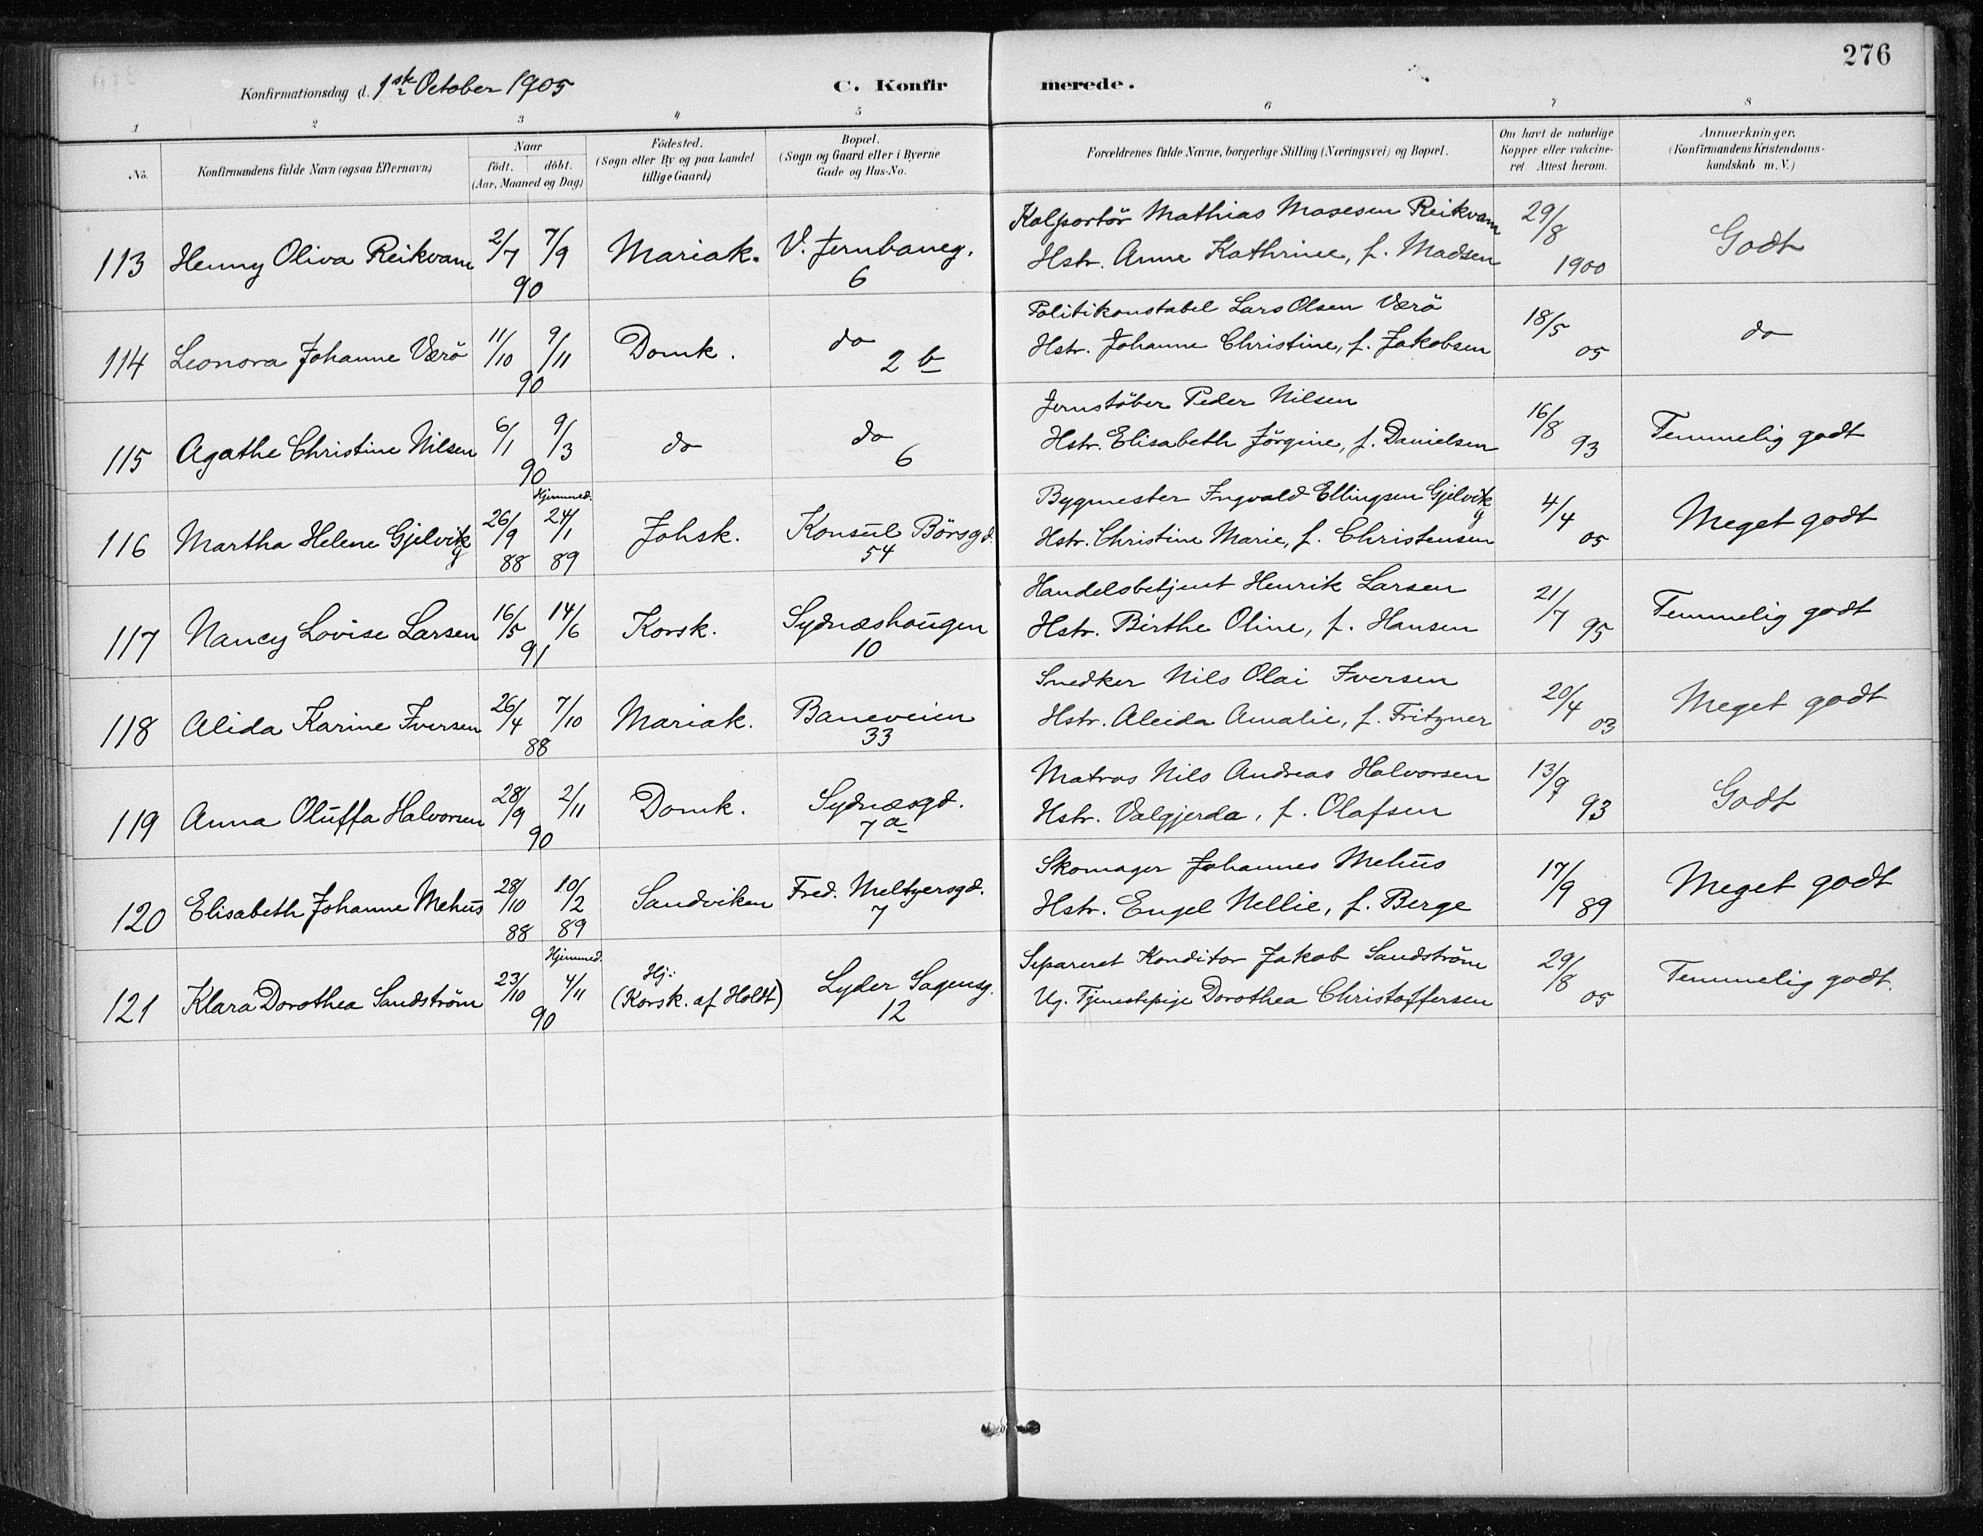 276
Konfirmationsdag d. 1ste October 1905
C. Konfirmerede.
1 2 3 4 5 6 7 8
No.
Konfirmandens fulde Navn (ogsaa Efternavn)
Naar
födt. döbt.
(Aar, Maaned og Dag)
Födested.
(Sogn eller By og paa Landet
tillige Gaard)
Bopæl.
(Sogn og Gaard eller i Byerne
Gade og Hus-No.
Forældrenes fulde Navne, borgerlige Stilling (Næringsvei) og Bopæl.
Om havt de naturlige
Kopper eller vakcine-
ret Attest herom.
Anmerkninger.
(Konfirmandens Kristendoms-
kundskab m. V.)
113 Henny Oliva Reikvam 2/7 7/9 90 Mariak. V. Jernbaneg. 6
Kolportör Mathias Mosesen Reikvam
Hstr. Anne Kathrine, f. Madsen
29/8 1900 Godt
114 Leonora Johanne Værö 11/10 9/11 90 Domk. do 2 b
Politikonstabel Lars Olsen Værö
Hstr. Johanne Christine, f. Jakobsen
18/5 05 do
115 Agathe Christine Nilsen 6/1 9/3 90 do do 6
Jernstöber Peder Nilsen
Hstr. Elisabeth Jörgine, f. Danielsen
16/8 93 Temmelig godt
116 Martha Helene Gjelvik g 26/9 88 Hjemmed. 24/1 89 Johsk. Konsul Börsgd. 54
Bygmester Ingvald Ellingsen Gjelvik g
Hstr. Christine Marie, f. Christensen
4/4 05 Meget godt
117 Nancy Lovise Larsen 16/5 14/6 91 Korsk. Sydnæshaugen 10
Handelsbetjent Henrik Larsen
Hstr. Birthe Oline, f. Hansen
21/7 95 Temmelig godt
118 Alida Karine Iversen 26/4 7/10 88 Mariak. Baneveien 33
Snedker Nils Olai Iversen
Hstr. Aleida Amalie, f. Fritzner
20/4 03 Meget godt
119 Anna Oluffa Halvorsen 28/9 2/11 90 Domk. Sydnæsgd. 7 a
Matros Nils Andreas Halvorsen
Hstr. Valgjerda, f. Olafsen
13/9 93 Godt
120 Elisabeth Johanne Mehus 28/10 88 10/2 89 Sandviken Fred. Meltzersgd. 7
Skomager Johannes Mehus
Hstr. Engel Nellie, f. Berge
17/9 89 Meget godt
121 Klara Dorothea Sandström 23/10 Hjemmed. 4/11 90 Hj: (Korsk. af Holdt) Lyder Sagensg. 12
Separeret Konditor Jakob Sandström
Ug. Tjenestepige Dorothea Christoffersen
29/8 05 Temmelig godt.